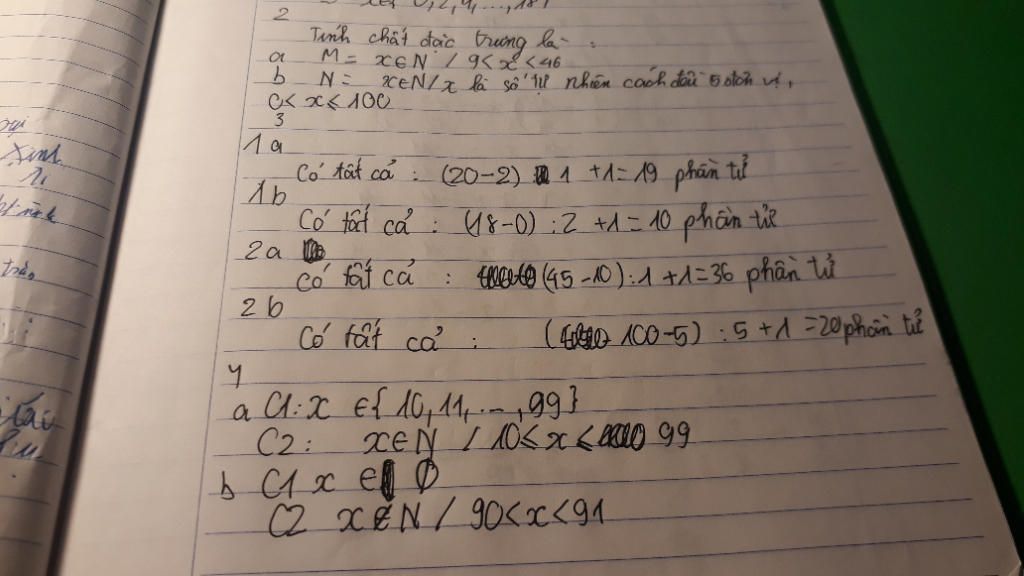 x∈{0,2,4,...,18}
2
Tính chất đặc trưng là:
a M = x∈N / 9<x<46
b N = x∈N/x là số tự nhiên cách đều 5 đơn vị,
0<x≤100
3
1a
Có tất cả : (20-2) 1 +1=19 phần tử
1b
Có tất cả : (18-0) :2 +1=10 phần tử
2a
Có tất cả : (45-10):1 +1=36 phần tử
2b
Có tất cả : (100-5) :5 +1 =20 phần tử
4
a C1:x ∈{10,11,...,99}
C2: x∈N / 10≤x≤ 99
b C1 x ∈ ∅
C2 x∉N / 90<x<91